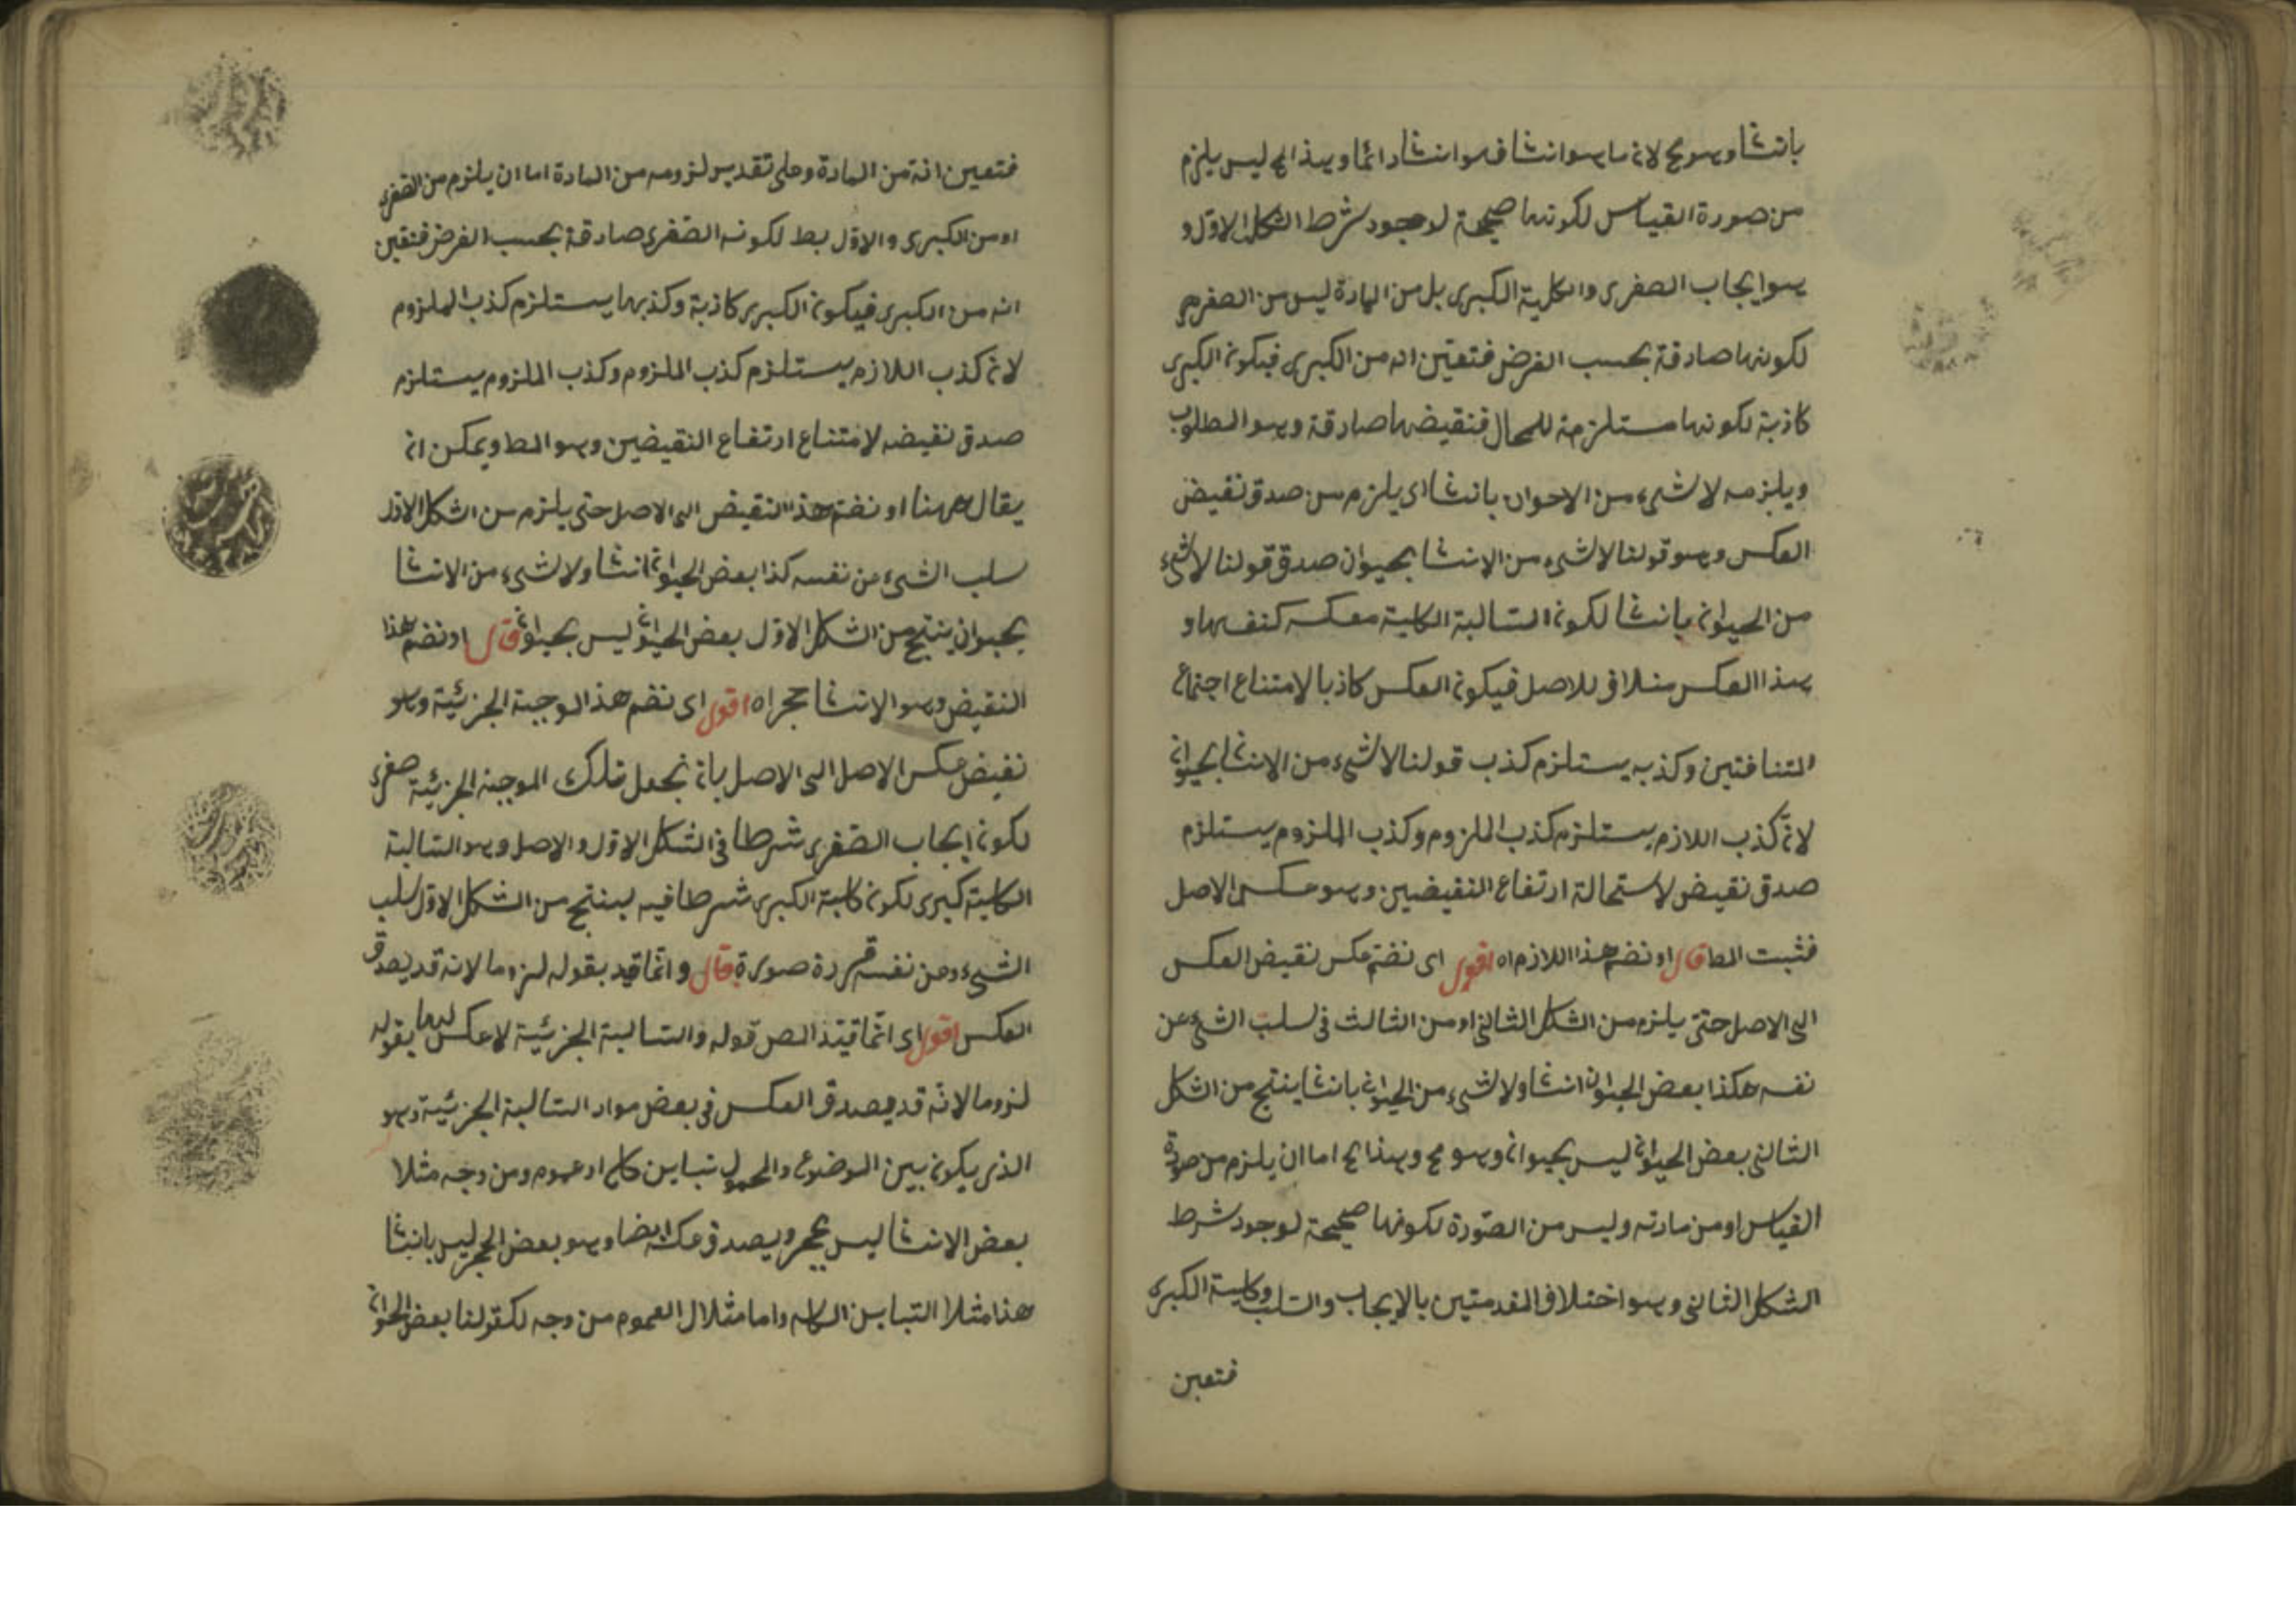 بانشا وهو مح لانه ما هو انشا فهو انشا دائما وهذا المح ليس يلزم
من صورة القياس لكونها صحيحة لوجود شرط الشكل الاول و
هو ايجاب الصغرى والكلية الكبرى بل من المادة ليس من الصغرى
لكونها صادقة بحسب الفرض فتعين انه من الكبرى فيكون الكبرى
كاذبة لكونها مستلزمة للمحال فنقيضها صادقة وهو المطلوب
ويلزمه لا شىء من الاحوان بانشا اى يلزم من صدق نقيض
العكس وهو قولنا لا شىء من الانشا بحيوان صدق قولنا لا شىء
من الحيوان بانشا لكون السالبة الكلية معكسه كنفسها و
هذا العكس مناف للاصل فيكون العكس كاذبا لامتناع اجتماع
المتنافتين وكذبه يستلزم كذب قولنا لا شىء من الانشا بحيوان
لان كذب اللازم يستلزم كذب الملزوم وكذب الملزوم يستلزم
صدق نقيض لاستحالة ارتفاع النقيضين وهو عكس الاصل
فثبت المط قال او نضم هذا اللازم اه اقول اى نضم عكس نقيض العكس
الى الاصل حتى يلزم من الشكل الثانى او من الثالث فى سلب الشىء عن
نفسه هكذا بعض الحيوان انشا ولا شىء من الحيوان بانشا ينتج من الشكل
الثانى بعض الحيوان ليس بحيوان وهو مح وهذا مح اما ان يلزم من صورة
القياس او من مادته وليس من الصورة لكونها صحيحة لوجود شرط
الشكل الثانى وهو اختلاف المقدمتين بالايجاب والسلب وكلية الكبرى
فتعين
فتعين انه من المادة وعلى تقدير لزومه من المادة اما ان يلزم من الصغرى
او من الكبرى والاول بط لكونه الصغرى صادقة بحسب الفرض فتعين
انه من الكبرى فيكون الكبرى كاذبة وكذبها يستلزم كذب الملزوم
لان كذب اللازم يستلزم كذب الملزوم وكذب الملزوم يستلزم
صدق نقيضه لامتناع ارتفاع النقيضين وهو المط ويمكن ان
يقال ههنا او نضم هذا النقيض الى الاصل حتى يلزم من الشكل الاول
سلب الشىء عن نفسه كذا بعض الحيوان انشا ولا شىء من الانشا
بحيوان ينتج من الشكل الاول بعض الحيوان ليس بحيوان قال او نضم هذا
النقيض وهو الانشا حجر اه اقول اى نضم هذا الموجبة الجزئية وهو
نقيض عكس الاصل الى الاصل بان نجعل تلك الموجبة الجزئية صغرى
لكون ايجاب الصغرى شرطا فى الشكل الاول والاصل وهو السالبة
الكلية كبرى لكون كلية الكبرى شرطا فيه لينتج من الشكل الاول سلب
الشىء ومن نفسه صورة قال وانما قيد بقوله لزوما لانه قد يصدق
العكس اقول اى انما قيد المص قوله والسالبة الجزئية لا عكس لها بقوله
لزوما لانه قد يصدق العكس فى بعض مواد السالبة الجزئية وهو
الذى يكون بين الموضوع والمحمول تباين كلى او عموم ومن وجه مثلا
بعض الانشا ليس بحجر ويصدق عكسه ايضا وهو بعض الحجر ليس بانشا
هذا مثلا التباين الكلى واما مثلال العموم من وجه لكقولنا بعض الحيوان